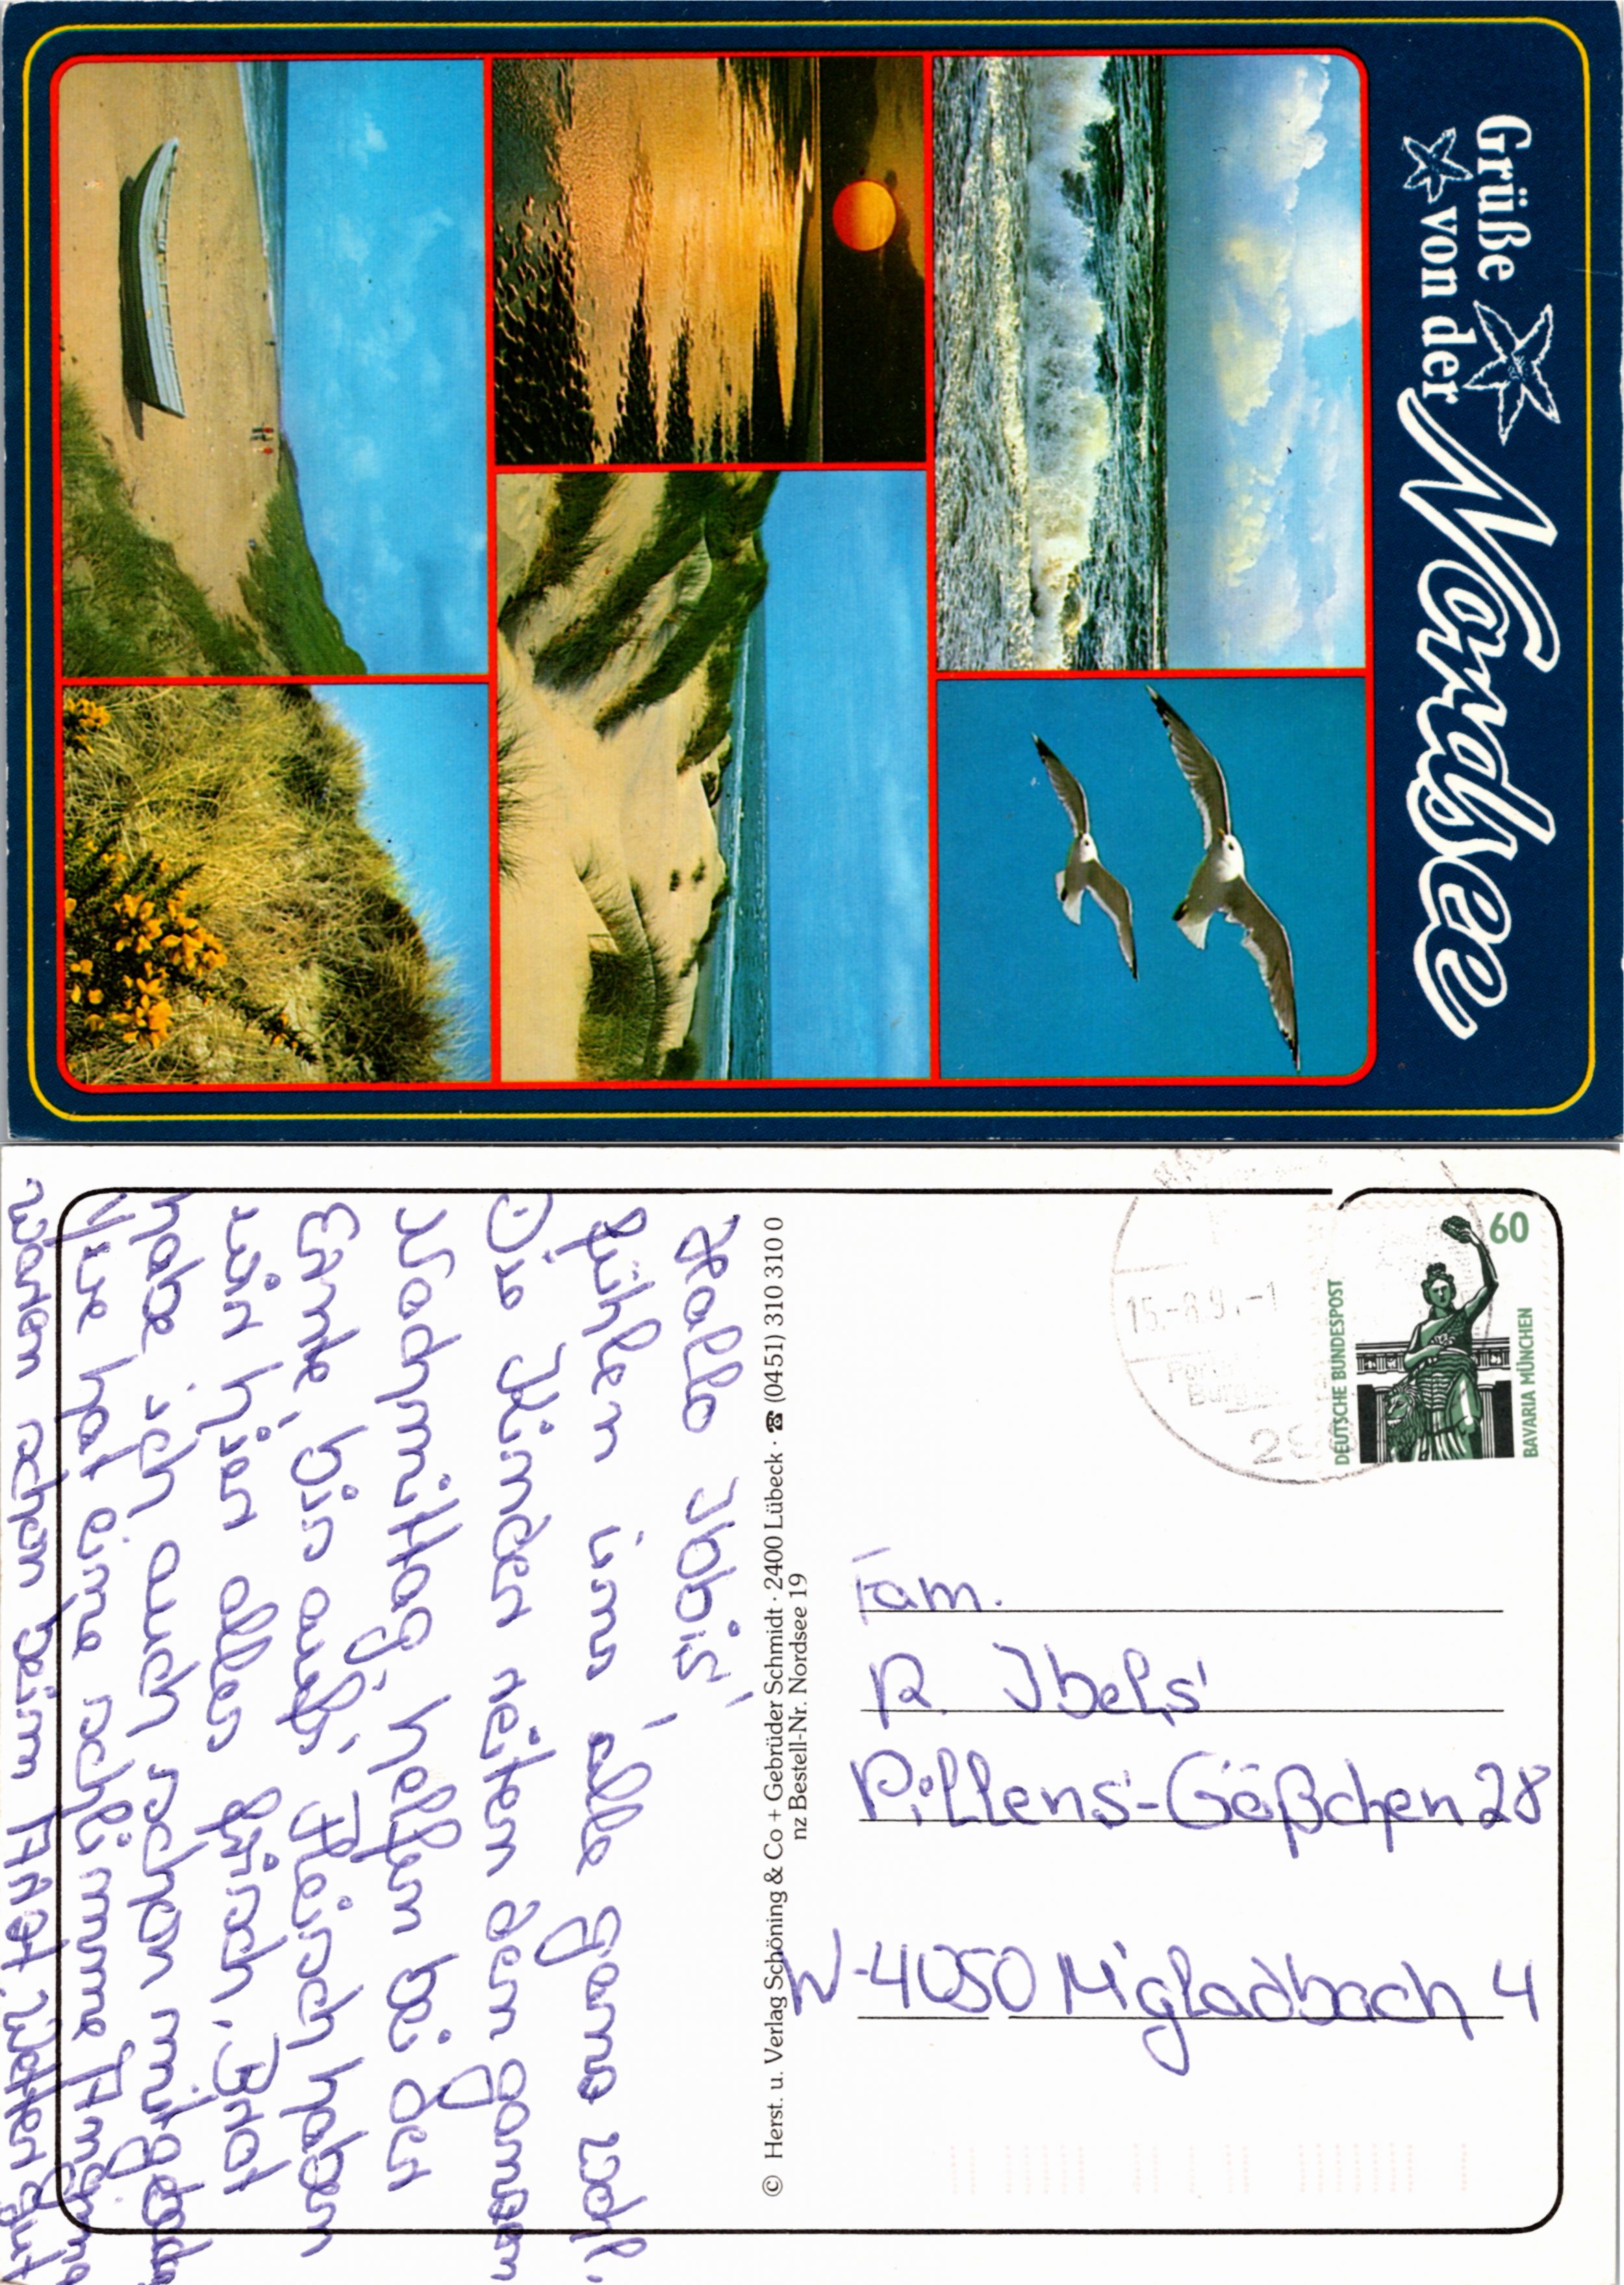 Grüße
von der
Nordsee
60
DEUTSCHE BUNDESPOST
BAVARIA MÜNCHEN
15.-8.9
Hallo Ibis'
fühlen uns' alle ganz wohl.
Die Kinder reiten den ganzen
Nachmittag, helfen bei der
Ernte, bis aufs' Fleisch haben
wir hier alles frisch, Brot
habe ich auch schon mitgeba
hat eine schlimme Angina
waren schon beim Arzt, Wetter gut
© Herst. u. Verlag Schöning & Co + Gebrüder Schmidt · 2400 Lübeck · ☎ (0451) 310 310 0
nz Bestell-Nr. Nordsee 19
Fam.
R. Ibels'
Pillens'-Gäßchen 28
W-4050 M'gladbach 4